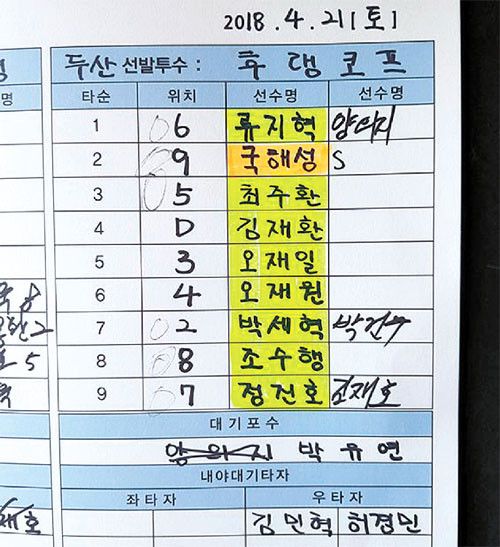 2018.4.21[토]
두산 선발투수 : 후랭코프
명 타순 위치 선수명 선수명
1 6 류지혁 양의지
2 9 국해성 S
3 5 최주환
4 D 김재환
5 3 오재일
6 4 오재원
7 2 박세혁 박건우
8 8 조수행
5
9 7 정진호 김재호
대기포수
양의지 박유연
내야대기타자
좌타자 우타자
재호 김민혁 허경민